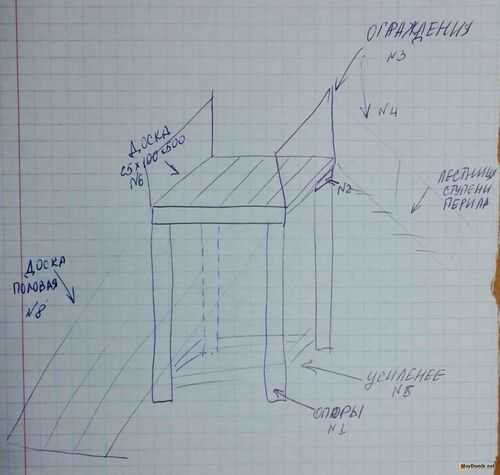 ОГРАЖДЕНИЯ
N3
N4
ДОСКА
25×100×500
N6
N2
ЛЕСТНИЦЫ
СТУПЕНИ
ПЕРИЛА
ДОСКА
ПОЛОВАЯ
N8
УСИЛЕНЕЕ
ОПОРЫ
N1
MoyDomik.net